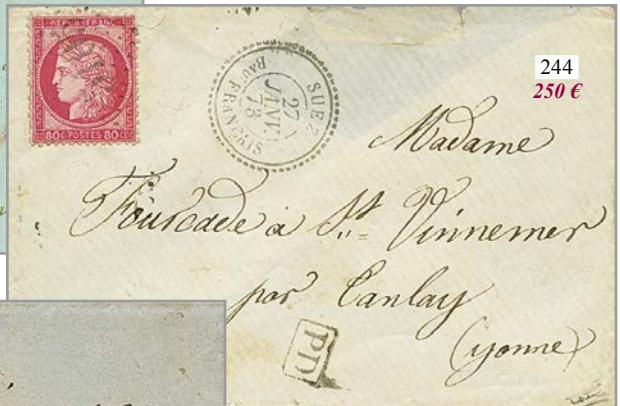 REPUB FRANC
80 C POSTES 80 C
SUEZ
27
JANV.
73
Bau FRANÇAIS
244
250 €
Madame
Fourcade à St. Vinnemer
par Tanlay
(yonne)
PD